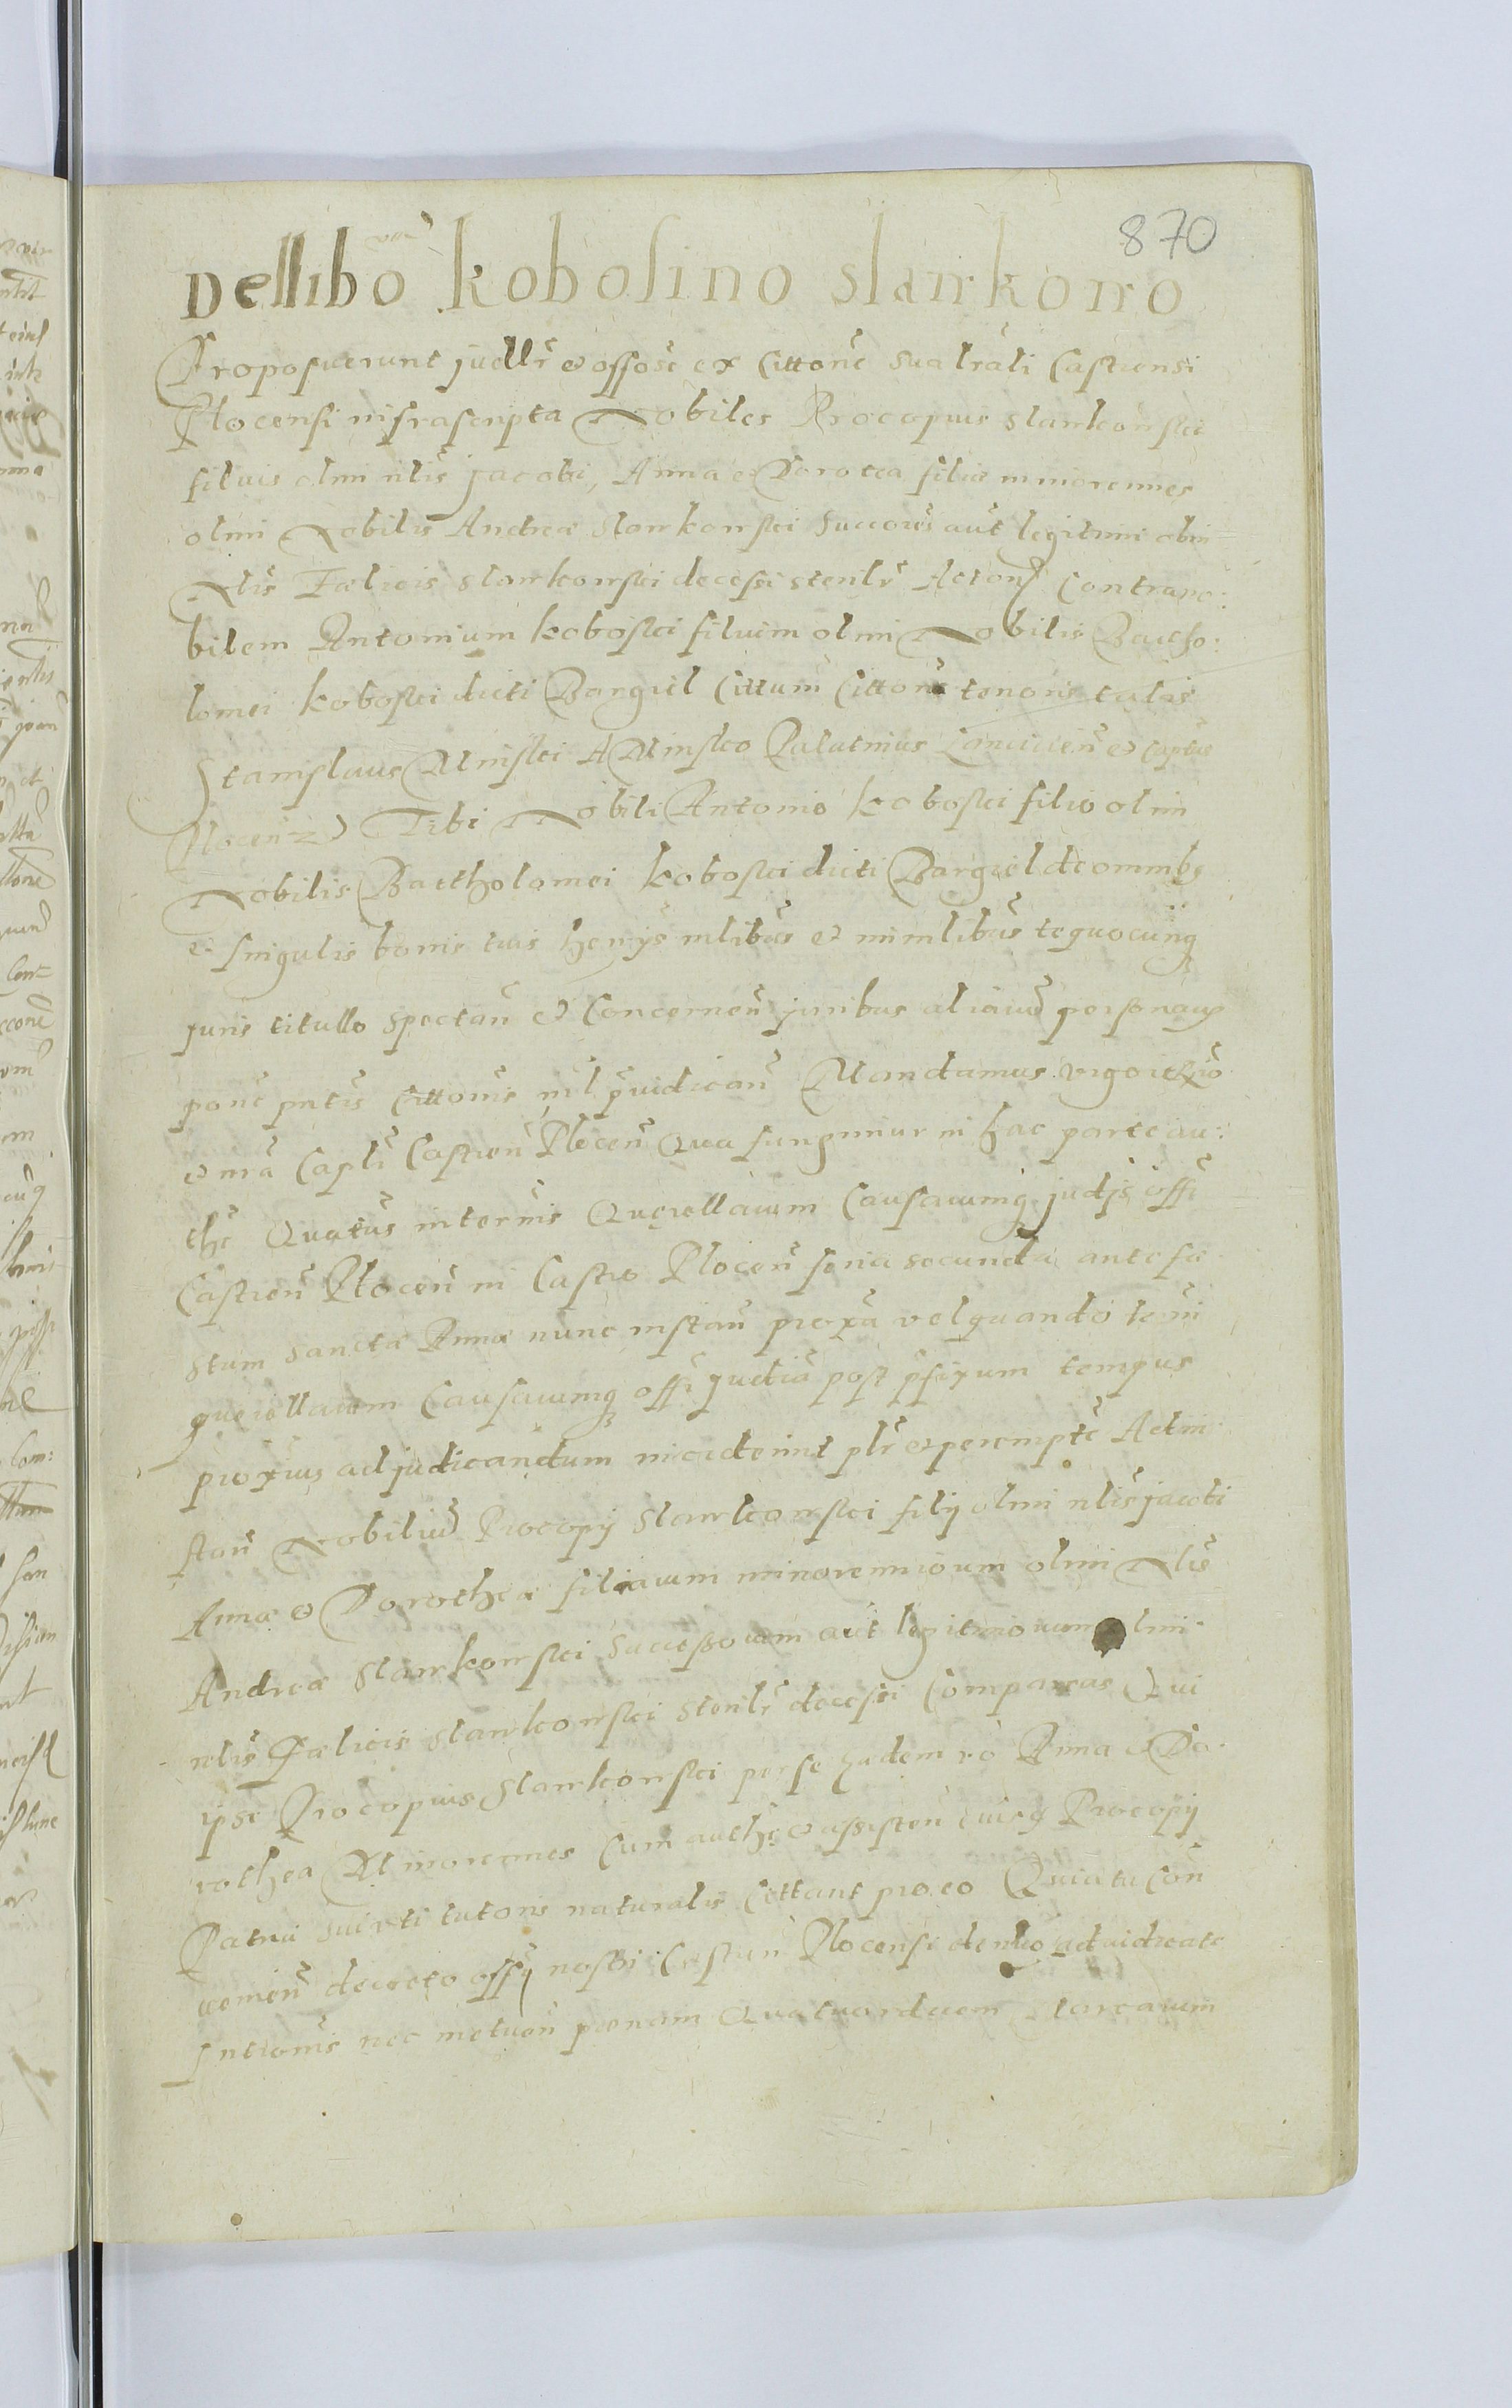 870
Dellibo Kobosino Slankowo
Proposuerunt juellr et offose ex cittone sua lrali Castrensi
Plocensi infrascripta Nobiles Procopius Slankowski
filius olim nlis Jacobi, Anna et Dorotea filie minorennes
olim Nobilis Andreæ Slankowski Succores aut legitimi olim
Nlis Fælicis Slankowski decessi sterilr Actors Contra no:
bilem Antonium Koboski filium olim Nobilis Bartho:
lomei Koboski dicti Bargiel Cittum Cittone tenoris talis
Stanislaus Minski A Minsko Palatinus Lancicien et Captus
Plocen Tibi Nobili Antonio Koboski filio olim
Nobilis Barthol omei Koboski dicti Bargiel de omnibq
et singulis bonis tuis hemijs mlibus et immlibus te quocunq
juris titullo spectan et Concernen juribus aliaru personaru
pone pntis cittonis nil pviudican Mandamus vigore
et nra Capli Castren Plocen Qua fungimur in hac parte au:
the Quatus in ternis Querellarum Causarumq judijs offi
Castren Plocen in Castro Plocen feria secunda ante fæ
stum Sanctæ Annæ nunc instan proxa vel quando terni
querellarum Causarumq offi judtia post pfixum tempus
proxius ad judicandum inciderint plr et perempte Ad in
stan Nobiliu Procopij Slankowski filij olim nlis Jacobi
Annæ et Dorotheæ filiarum minorenniorum olim Nlis
Andreæ Slankowski Successorum aut legitimorum olim
nlis Fælicis Slankowski sterilr decessi Compareas Qui
ipse Procopius Slankowski per se eadem vo Anna et Do
rothea Minorennes Cum authe et assisten eiusq Procopij
Patrui sui uti tutoris naturalis Cittant pro eo Quia tu Con
uemen decreto offij nostri Castrin Plocensi
Intromis nec metuen pœnam Quatuordecem Marcarum